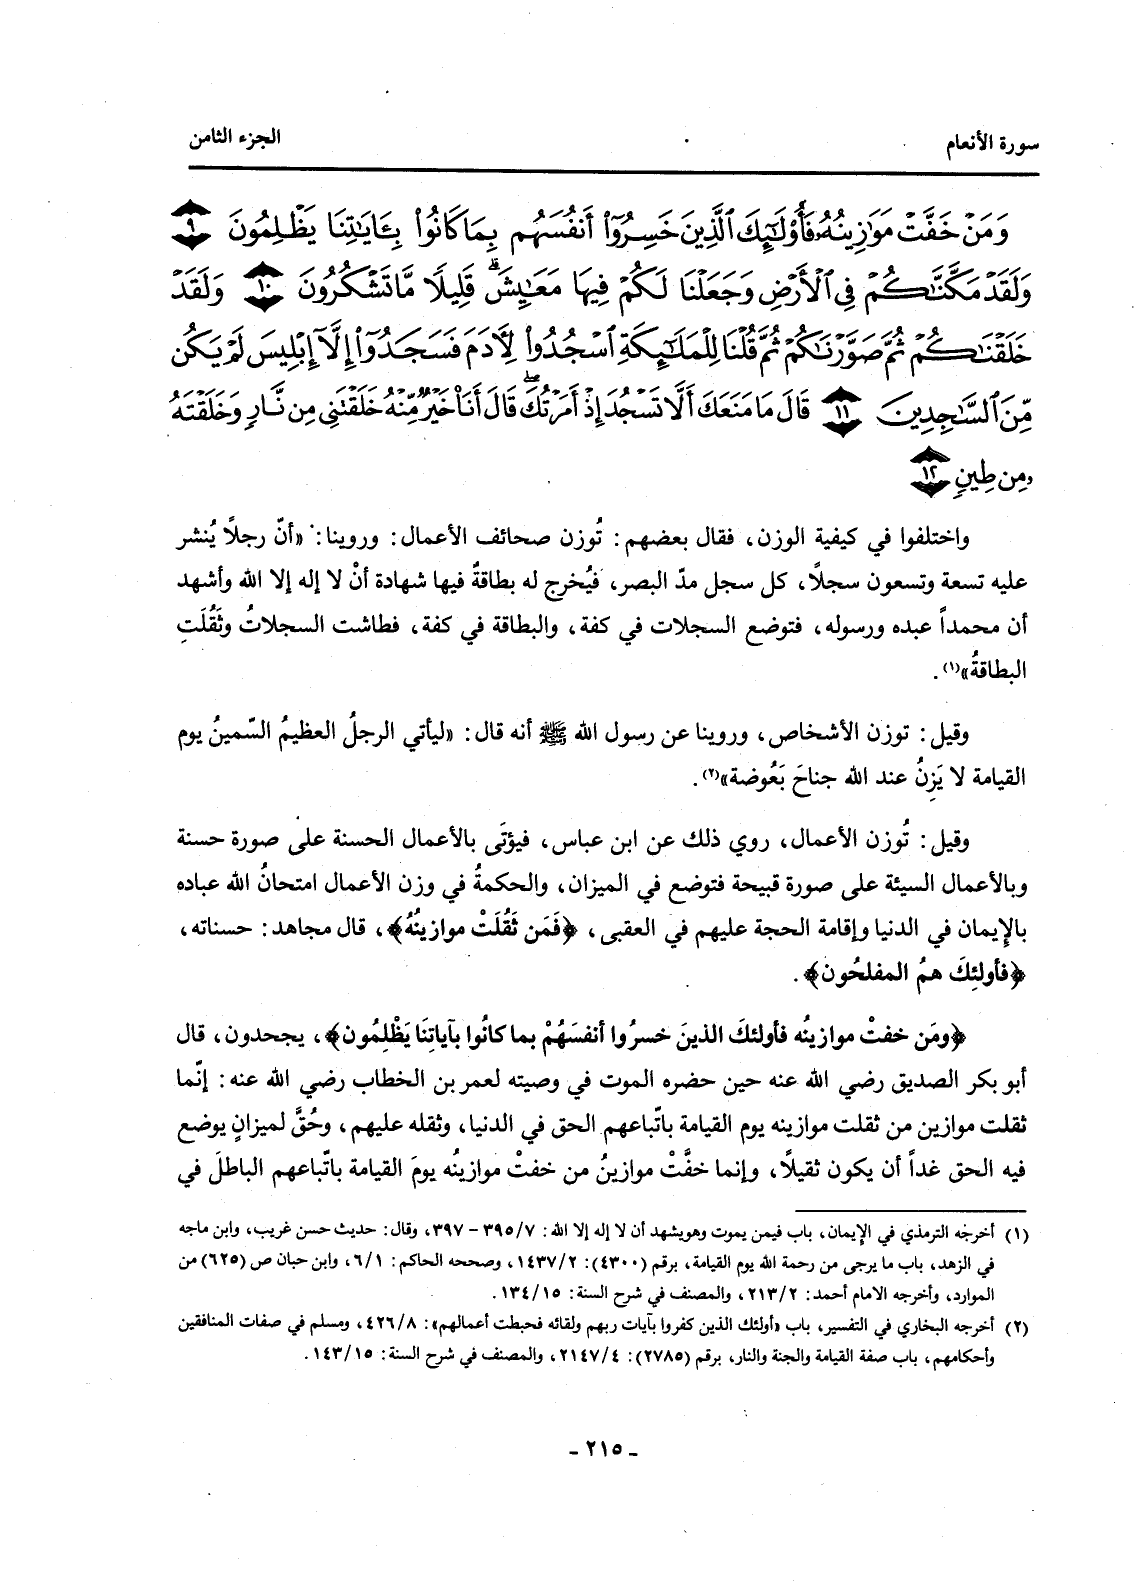 سورة الأنعام
الجزء الثامن
وَمَنْ خَفَّتْ مَوَٰزِينُهُۥ فَأُو۟لَٰٓئِكَ ٱلَّذِينَ خَسِرُوٓا۟ أَنفُسَهُم بِمَا كَانُوا۟ بِـَٔايَٰتِنَا يَظْلِمُونَ ٩
وَلَقَدْ مَكَّنَّٰكُمْ فِى ٱلْأَرْضِ وَجَعَلْنَا لَكُمْ فِيهَا مَعَٰيِشَ ۗ قَلِيلًا مَّا تَشْكُرُونَ ١٠ وَلَقَدْ
خَلَقْنَٰكُمْ ثُمَّ صَوَّرْنَٰكُمْ ثُمَّ قُلْنَا لِلْمَلَٰٓئِكَةِ ٱسْجُدُوا۟ لِءَادَمَ فَسَجَدُوٓا۟ إِلَّآ إِبْلِيسَ لَمْ يَكُن
مِّنَ ٱلسَّٰجِدِينَ ١١ قَالَ مَا مَنَعَكَ أَلَّا تَسْجُدَ إِذْ أَمَرْتُكَ ۖ قَالَ أَنَا۠ خَيْرٌ مِّنْهُ خَلَقْتَنِى مِن نَّارٍ وَخَلَقْتَهُ
ۥ مِن طِينٍ ١٢
واختلفوا في كيفية الوزن، فقال بعضهم: تُوزن صحائف الأعمال: وروينا: «أنّ رجلاً يُنشر
عليه تسعة وتسعون سجلاً، كل سجل مدّ البصر، فيُخرج له بطاقةٌ فيها شهادة أنْ لا إله إلا الله وأشهد
أن محمداً عبده ورسوله، فتوضع السجلات في كفة، والبطاقة في كفة، فطاشت السجلاتُ وثَقُلَتِ
البطاقةُ»(١).
وقيل: توزن الأشخاص، وروينا عن رسول الله ﷺ أنه قال: «ليأتي الرجلُ العظيمُ السّمينُ يوم
القيامة لا يَزِنُ عند الله جناحَ بَعُوضة»(٢).
وقيل: تُوزن الأعمال، روي ذلك عن ابن عباس، فيؤتَى بالأعمال الحسنة على صورة حسنة
وبالأعمال السيئة على صورة قبيحة فتوضع في الميزان، والحكمةُ في وزن الأعمال امتحانُ الله عباده
بالإيمان في الدنيا وإقامة الحجة عليهم في العقبى، ﴿فَمَن ثَقُلَتْ موازينُهُ﴾، قال مجاهد: حسناته،
﴿فأولئِكَ همُ المفلحُون﴾.
﴿ومَن خفتْ موازينُه فأولئكَ الذينَ خسرُوا أنفسَهُمْ بما كانُوا بآياتِنَا يَظْلِمُون﴾، يجحدون، قال
أبو بكر الصديق رضي الله عنه حين حضره الموت في وصيته لعمر بن الخطاب رضي الله عنه: إنّما
ثقلت موازين من ثقلت موازينه يوم القيامة باتّباعهم الحق في الدنيا، وثقله عليهم، وحُقَّ لميزانٍ يوضع
فيه الحق غداً أن يكون ثقيلاً، وإنما خفَّتْ موازينُ من خفتْ موازينُه يومَ القيامة باتّباعهم الباطلَ في
(١) أخرجه الترمذي في الإيمان، باب فيمن يموت وهويشهد أن لا إله إلا الله: ٣٩٥/٧ – ٣٩٧، وقال: حديث حسن غريب، وابن ماجه
في الزهد، باب ما يرجى من رحمة الله يوم القيامة، برقم (٤٣٠٠): ١٤٣٧/٢، وصححه الحاكم: ٦/١، وابن حبان ص (٦٢٥) من
الموارد، وأخرجه الامام أحمد: ٢١٣/٢، والمصنف في شرح السنة: ١٣٤/١٥.
(٢) أخرجه البخاري في التفسير، باب «أولئك الذين كفروا بآيات ربهم ولقائه فحبطت أعمالهم»: ٤٢٦/٨، ومسلم في صفات المنافقين
وأحكامهم، باب صفة القيامة والجنة والنار، برقم (٢٧٨٥): ٢١٤٧/٤، والمصنف في شرح السنة: ١٤٣/١٥.
ـ ٢١٥ ـ